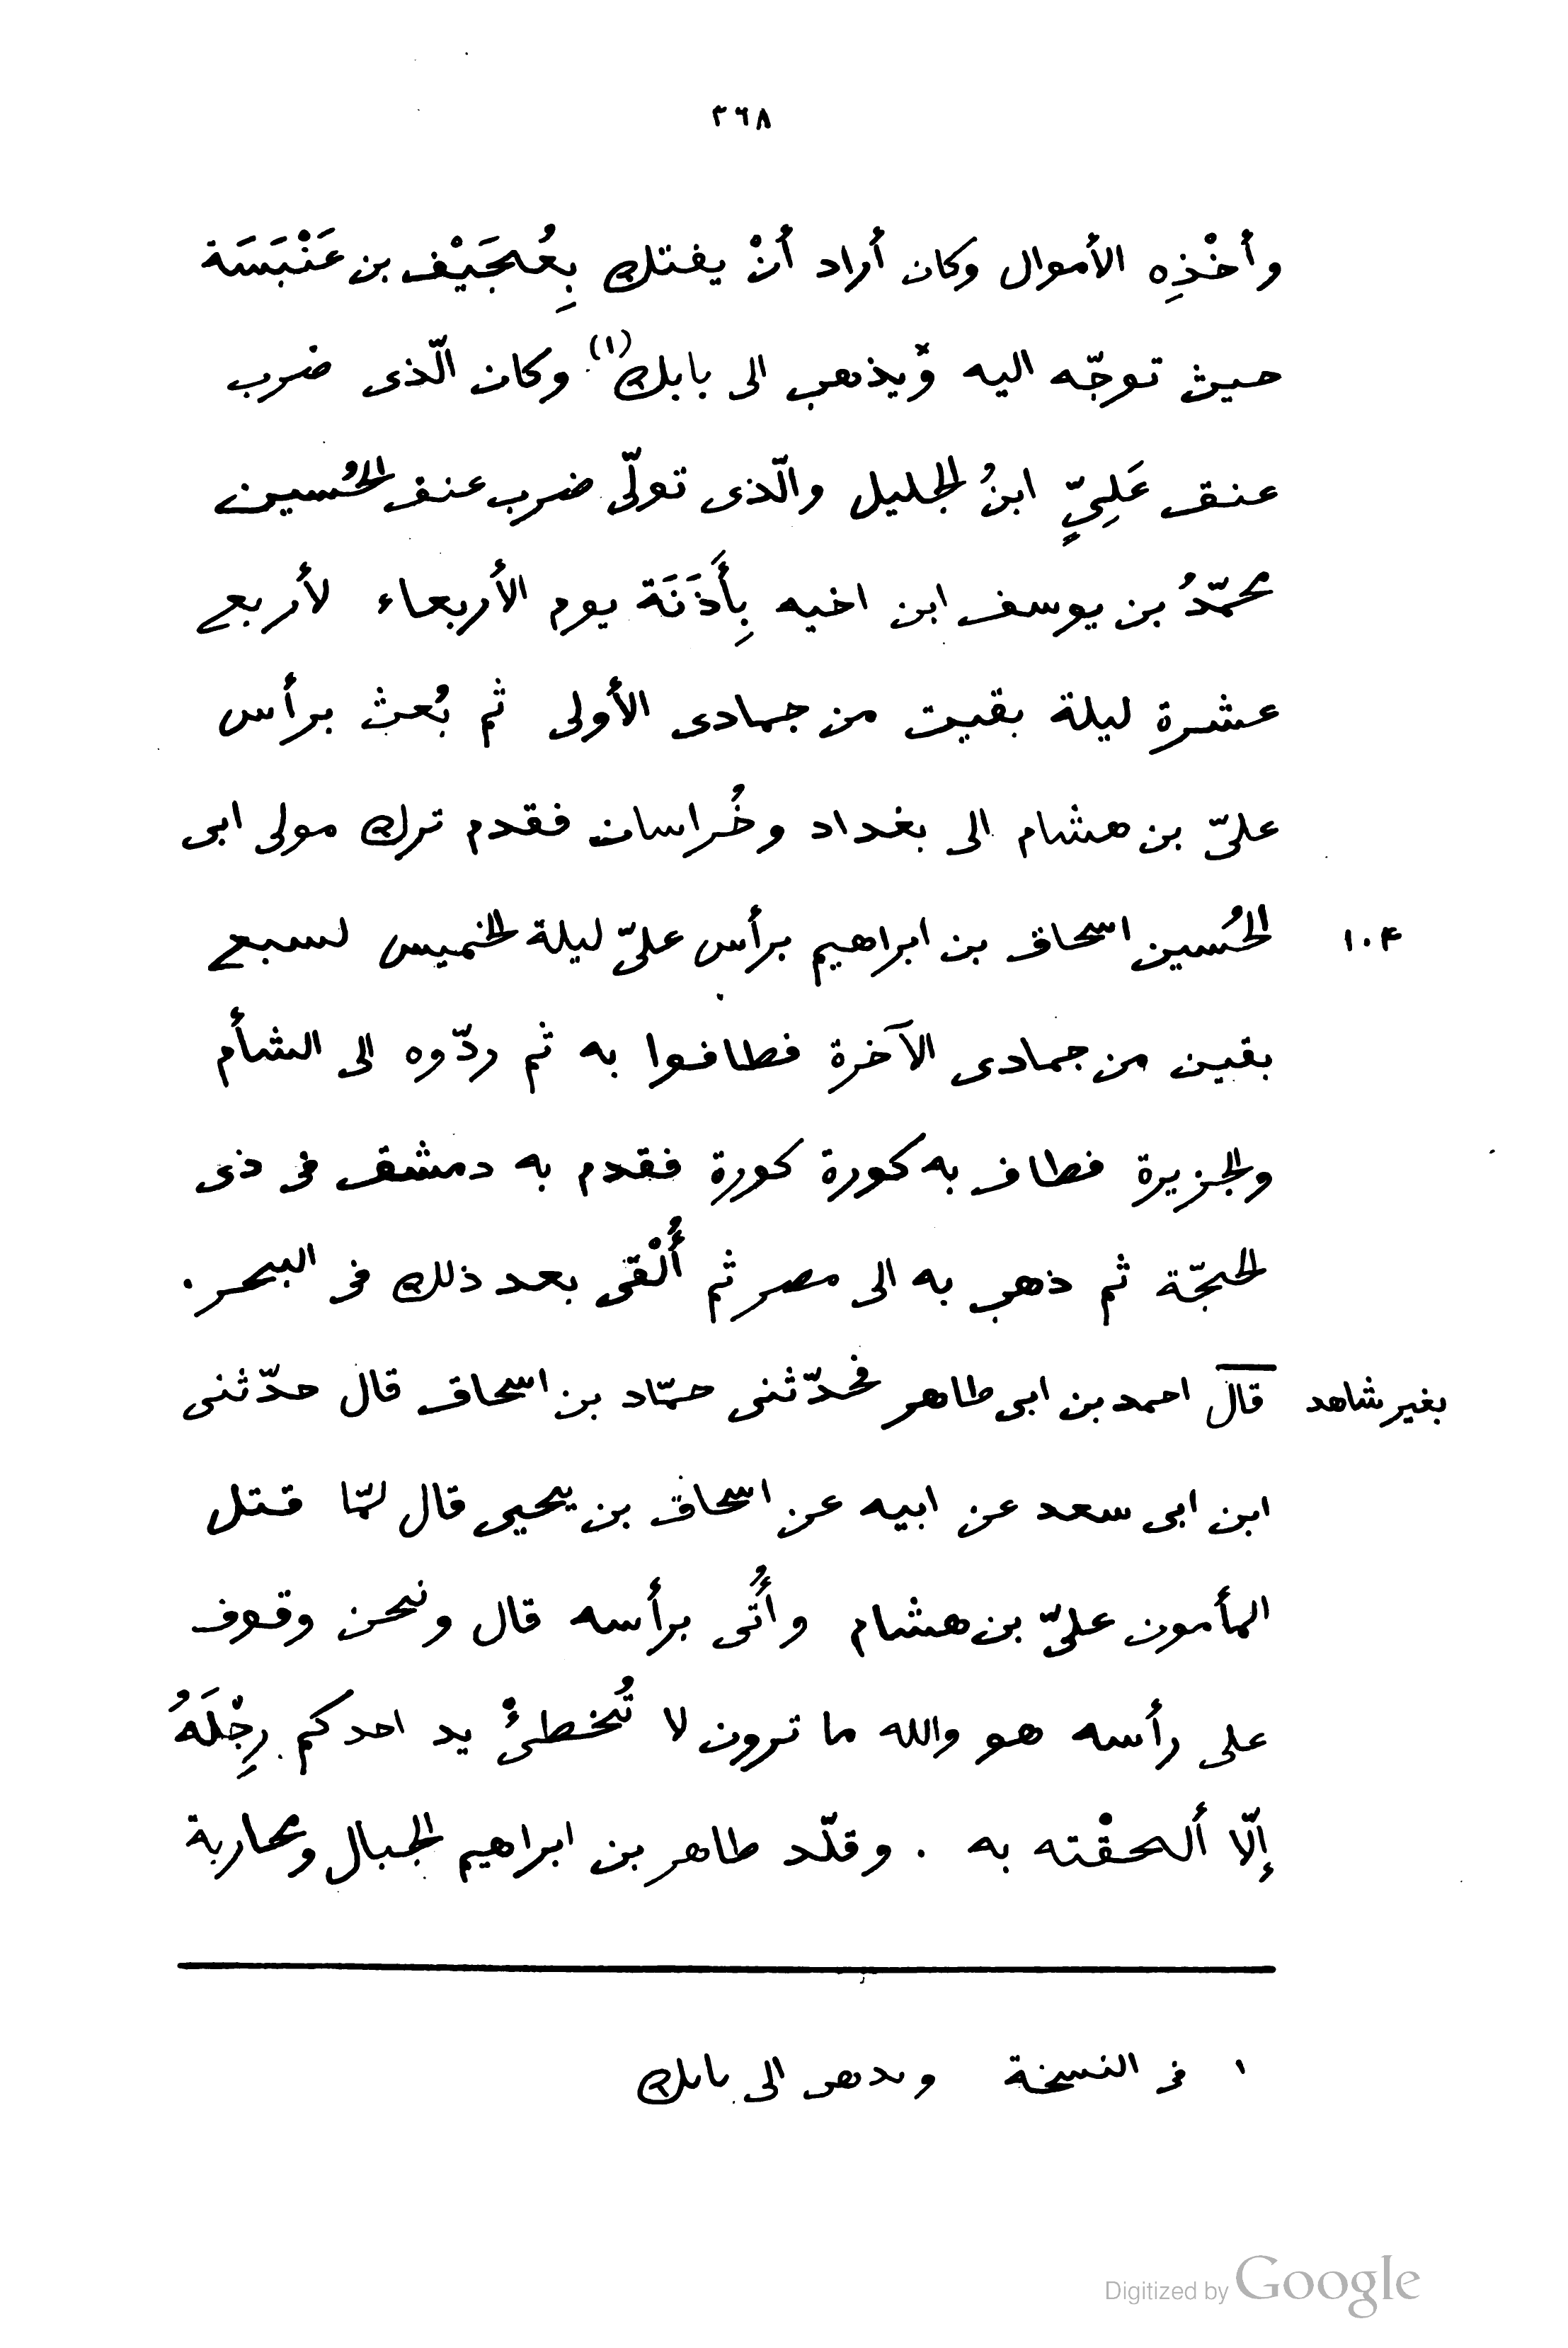 ٣٦٨
وأخْذِه الأموال وكان أراد أنْ يفتك بِعُجَيْف بن عَنْبَسَة
حيث توجّه اليه وَيذهب الى بابك (١) وكان الّذى ضرب
عنق عَلِيٍّ ابنُ الجليل والّذى تولّى ضرب عنق الحُسين
محمّدُ بن يوسف ابن اخيه بِأَذَنَة يوم الأربعاء لأربع
عشرة ليلة بقيت من جمادى الأولى ثم بُعث برأس
علىّ بن هشام الى بغداد وخُراسان فقدم ترك مولى ابى
١٠۴ الحُسين اسحاق بن ابراهيم برأس علىّ ليلة الخميس لسبع
بقين من جمادى الآخرة فطافوا به ثم ردّوه الى الشأم
والجزيرة فطاف به كورة كورة فقدم به دمشق فى ذى
الحجّة ثم ذهب به الى مصر ثم أُلْقى بعد ذلك فى البحر .
بغير شاهد قال احمد بن ابى طاهر فحدّثنى حمّاد بن اسحاق قال حدّثنى
ابن ابى سعد عن ابيه عن اسحاق بن يحيى قال لمّا قتل
المأمون علىّ بن هشام وأُتى برأسه قال ونحن وقوف
على رأسه هو والله ما ترون لا تُخطئْ يد احدكم رِجْلَهُ
إلّا ألحقْته به . وقلّد طاهر بن ابراهيم الجبال ومحاربة
١ فى النسخة وىدهى الى ىاىك
Digitized by Google